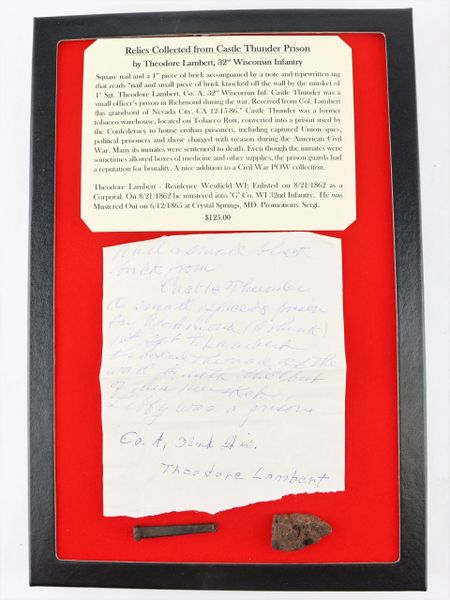 Relics Collected from Castle Thunder Prison
by Theodore Lambert, 32nd Wisconsin Infantry
Square nail and a 1" piece of brick accompanied by a note and typewritten tag
that reads "nail and small piece of brick knocked off the wall by the musket of
1st Sgt. Theodore Lambert, Co. A, 32nd Wisconsin Inf. Castle Thunder was a
small officer's prison in Richmond during the war. Received from Col. Lambert
this grandson) of Nevada City, CA 12-15-86." Castle Thunder was a former
tobacco warehouse, located on Tobacco Row, converted into a prison used by
the Confederacy to house civilian prisoners, including captured Union spies,
political prisoners and those charged with treason during the American Civil
War. Many its inmates were sentenced to death. Even though the inmates were
sometimes allowed boxes of medicine and other supplies, the prison guards had
a reputation for brutality. A nice addition to a Civil War POW collection.
Theodore Lambert - Residence Westfield WI; Enlisted on 8/21/1862 as a
Corporal. On 8/21/1862 be mustered into "G" Co. WI 32nd Infantry. He was
Mustered Out on 6/12/1865 at Crystal Springs, MD. Promotions: Sergt.
$125.00
brick from
Castle Thunder
a small officers prison
in Richmond (I think)
1st Sgt T. Lambert
knocked the nail off the
wall with the butt
of his musket
Libby was a prison
Co. A, 32nd Wis.
Theodore Lambert